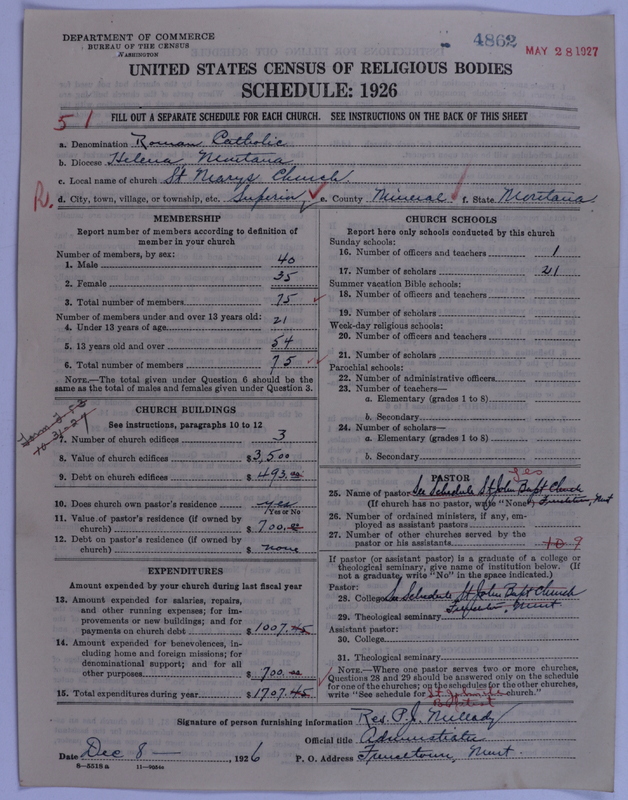 DEPARTMENT OF COMMERCE
BUREAU OF THE CENSUS
WASHINGTON
4862
MAY 28 1927
UNITED STATES CENSUS OF RELIGIOUS BODIES
SCHEDULE: 1926
51
FILL OUT A SEPARATE SCHEDULE FOR EACH CHURCH. SEE INSTRUCTIONS ON THE BACK OF THIS SHEET
a. Denomination Roman Catholic
b. Diocese Helena, Montana
c. Local name of church St Marys Church
R. d. City, town, village, or township, etc. Superior e. County Mineral f. State Montana
MEMBERSHIP
Report number of members according to definition of
member in your church
Number of members, by sex:
1. Male 40
2. Female 35
3. Total number of members 75
Number of members under and over 13 years old:
4. Under 13 years of age 21
5. 13 years old and over 54
6. Total number of members 75
NOTE.—The total given under Question 6 should be the
same as the total of males and females given under Question 3.
CHURCH BUILDINGS
See instructions, paragraphs 10 to 12
7. Number of church edifices 3
8. Value of church edifices $3,500
9. Debt on church edifices $493.00
10. Does church own pastor's residence yes
Yes or No
11. Value of pastor's residence (if owned by
church) $700.00
12. Debt on pastor's residence (if owned by
church) $ none
EXPENDITURES
Amount expended by your church during last fiscal year
13. Amount expended for salaries, repairs,
and other running expenses; for im-
provements or new buildings; and for
payments on church debt $1007.45
14. Amount expended for benevolences, in-
cluding home and foreign missions; for
denominational support; and for all
other purposes $700.00
15. Total expenditures during year $1707.45
CHURCH SCHOOLS
Report here only schools conducted by this church
Sunday schools:
16. Number of officers and teachers 1
17. Number of scholars 21
Summer vacation Bible schools:
18. Number of officers and teachers
19. Number of scholars
Week-day religious schools:
20. Number of officers and teachers
21. Number of scholars
Parochial schools:
22. Number of administrative officers
23. Number of teachers—
a. Elementary (grades 1 to 8)
b. Secondary
24. Number of scholars—
a. Elementary (grades 1 to 8)
b. Secondary
PASTOR yes
25. Name of pastor See Schedule St John Bapt Church
(If church has no pastor, write "None") Frenchtown, Mont
26. Number of ordained ministers, if any, em-
ployed as assistant pastors
27. Number of other churches served by the
pastor or his assistants 10 9
If pastor (or assistant pastor) is a graduate of a college or
theological seminary, give name of institution below. (If
not a graduate, write "No" in the space indicated.)
Pastor:
28. College See Schedule St John Bapt Church
29. Theological seminary
Assistant pastor:
30. College
31. Theological seminary
NOTE.—Where one pastor serves two or more churches,
Questions 28 and 29 should be answered only on the schedule
for one of the churches; on the schedules for the other churches,
write "See schedule for St. John's church."
Baptist
Signature of person furnishing information Rev. P.J.
Official title Administrator
Date Dec 8 —, 1926 P. O. Address Frenchtown, Mont.
8—5518a 11—9054a